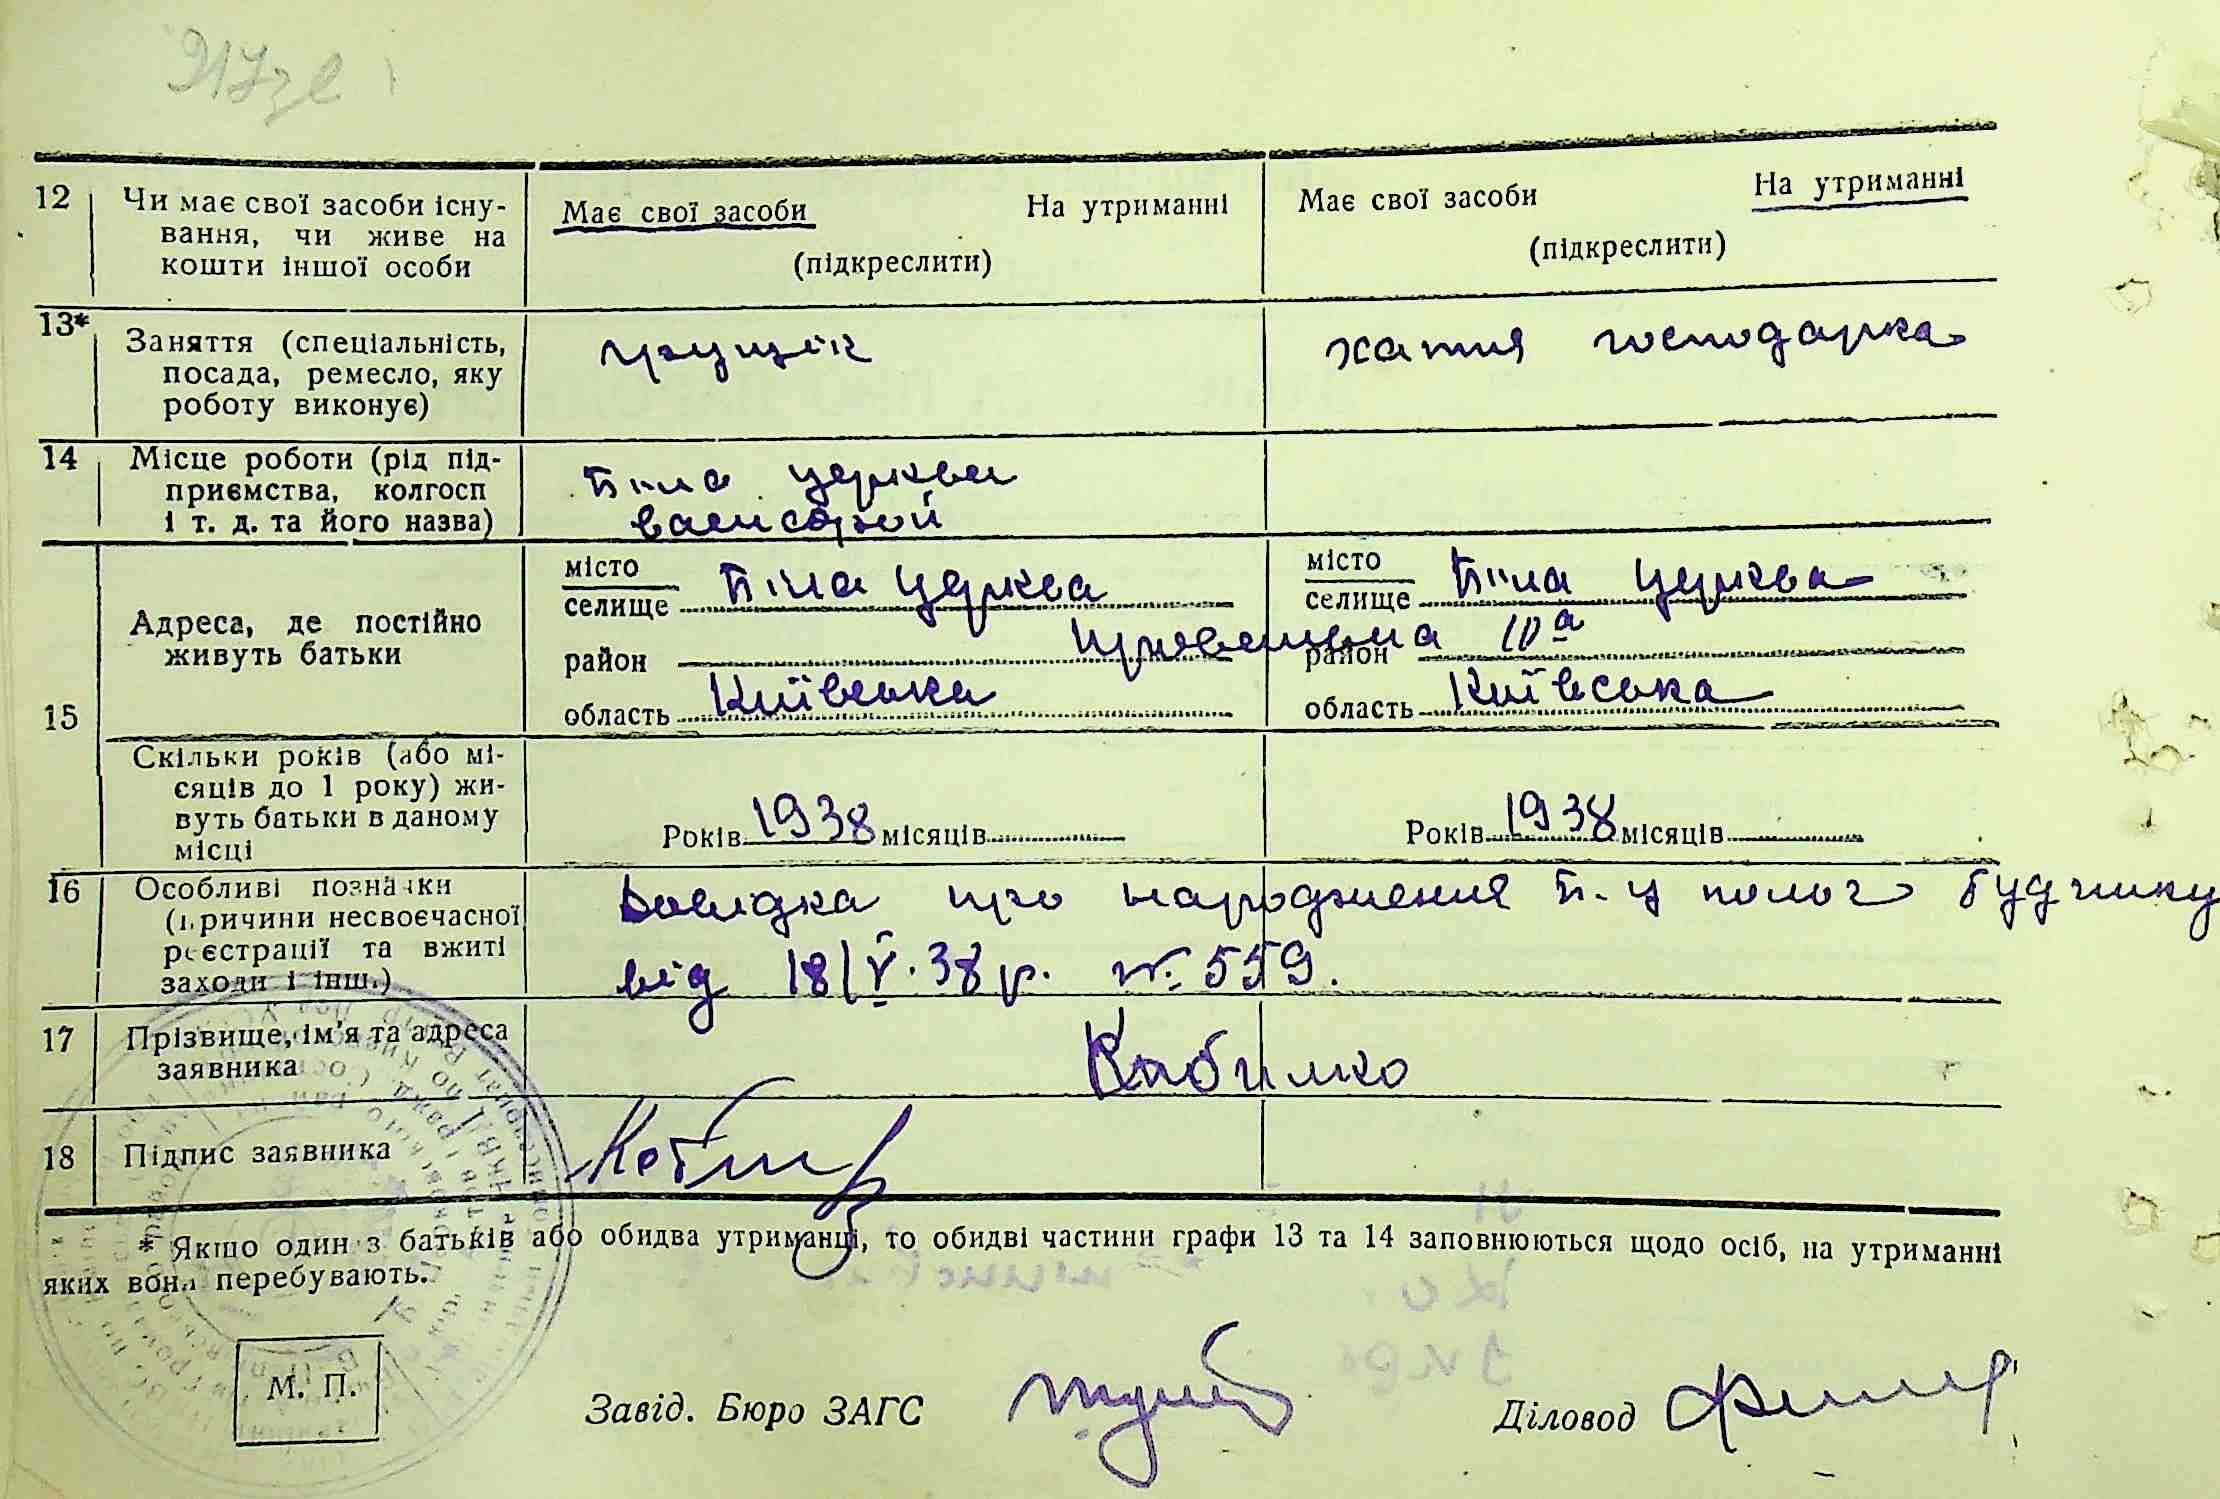 12 Чи має свої засоби існу-
вання, чи живе на
кошти іншої особи
Має свої засоби На утриманні
(підкреслити)
Має свої засоби На утриманні
(підкреслити)
13* Заняття (спеціальність,
посада, ремесло, яку
роботу виконує)
грущік
хатня господарка
14 Місце роботи (рід під-
приємства, колгосп
і т. д. та його назва)
Біла церква
15 Адреса, де постійно
живуть батьки
місто
селище Біла церква
район
область Київська
місто
селище Біла церква
10а
район
область Київська
Скільки років (або мі-
сяців до 1 року) жи-
вуть батьки в даному
місці
Років 1938 місяців
Років 1938 місяців
16 Особливі позначки
(причини несвоєчасної
реєстрації та вжиті
заходи і інш.)
Довідка про народження Б-Ц полог будинку
від 18/V.38р. №559.
17 Прізвище, ім'я та адреса
заявника
18 Підпис заявника
* Якшо один з батьків або обидва утриманці, то обидві частини графи 13 та 14 заповнюються щодо осіб, на утриманні
яких вони перебувають.
М. П.
Завід. Бюро ЗАГС
Діловод